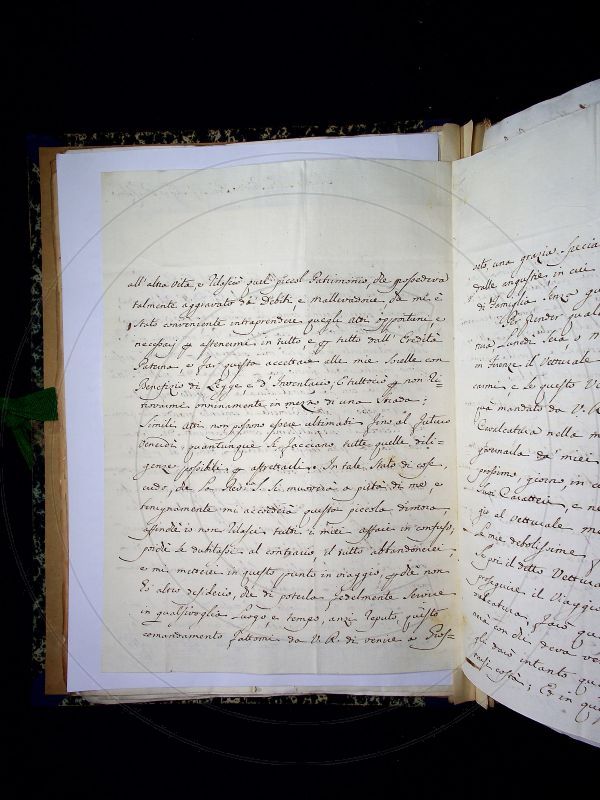 all'altra vita, e rilasciò quel piccol Patrimonio, che possedeva
talmente aggravato da Debiti, e mallevadorie che mi è
stato conveniente intraprendere quegli atti opportuni, e
necessarj p astenermi in tutto, e p tutto dall'Eredità
Paterna e far questa accettare alle mie Sorelle con
Benefizio di Legge, e d'Inventario, E tuttociò p non Ri=
trovarmi onninamente in mezo di una Strada;
Simili atti non possono essere ultimati fino al futuro
Venerdì, quantunque si facciano tutte quelle dili=
genze possibili p affrettarli. In tale stato di cose
credo, che la Rev. S. si muoverà a pietà di me, e
benignamente mi accorderà questa piccola dimora,
affinchè io non rilasci tutti i miei affari in confuso,
poichè se dubitassi al contrario, il tutto abbandonerei,
e mi metterei in questo punto in viaggio, p chè non
Ho altro desiderio, che di poterla fedelmente Servire
in qualsivoglia Luogo, e tempo, anzi reputo questo
comandamento fattomi da V. R. di venire a Gros=
sto, una grazia specia
dalle angustie, in cui
di Famiglia senza
Per prender qual
ma Lunedì Sera o
in Firenze il Vetturale
carmi, e se questo V
ma mandato da V. R.
Cavalcatura nella
giornata de' miei
prossimo, giorno in c
suoi Caratteri, e ne
gio al Vetturale
le me debolissime
Se poi il detto Vettura
proseguire il Viaggio
valcatura, farò qu
mia con chi deva ve
gli darò intanto qu
rassi costà; Ed in que